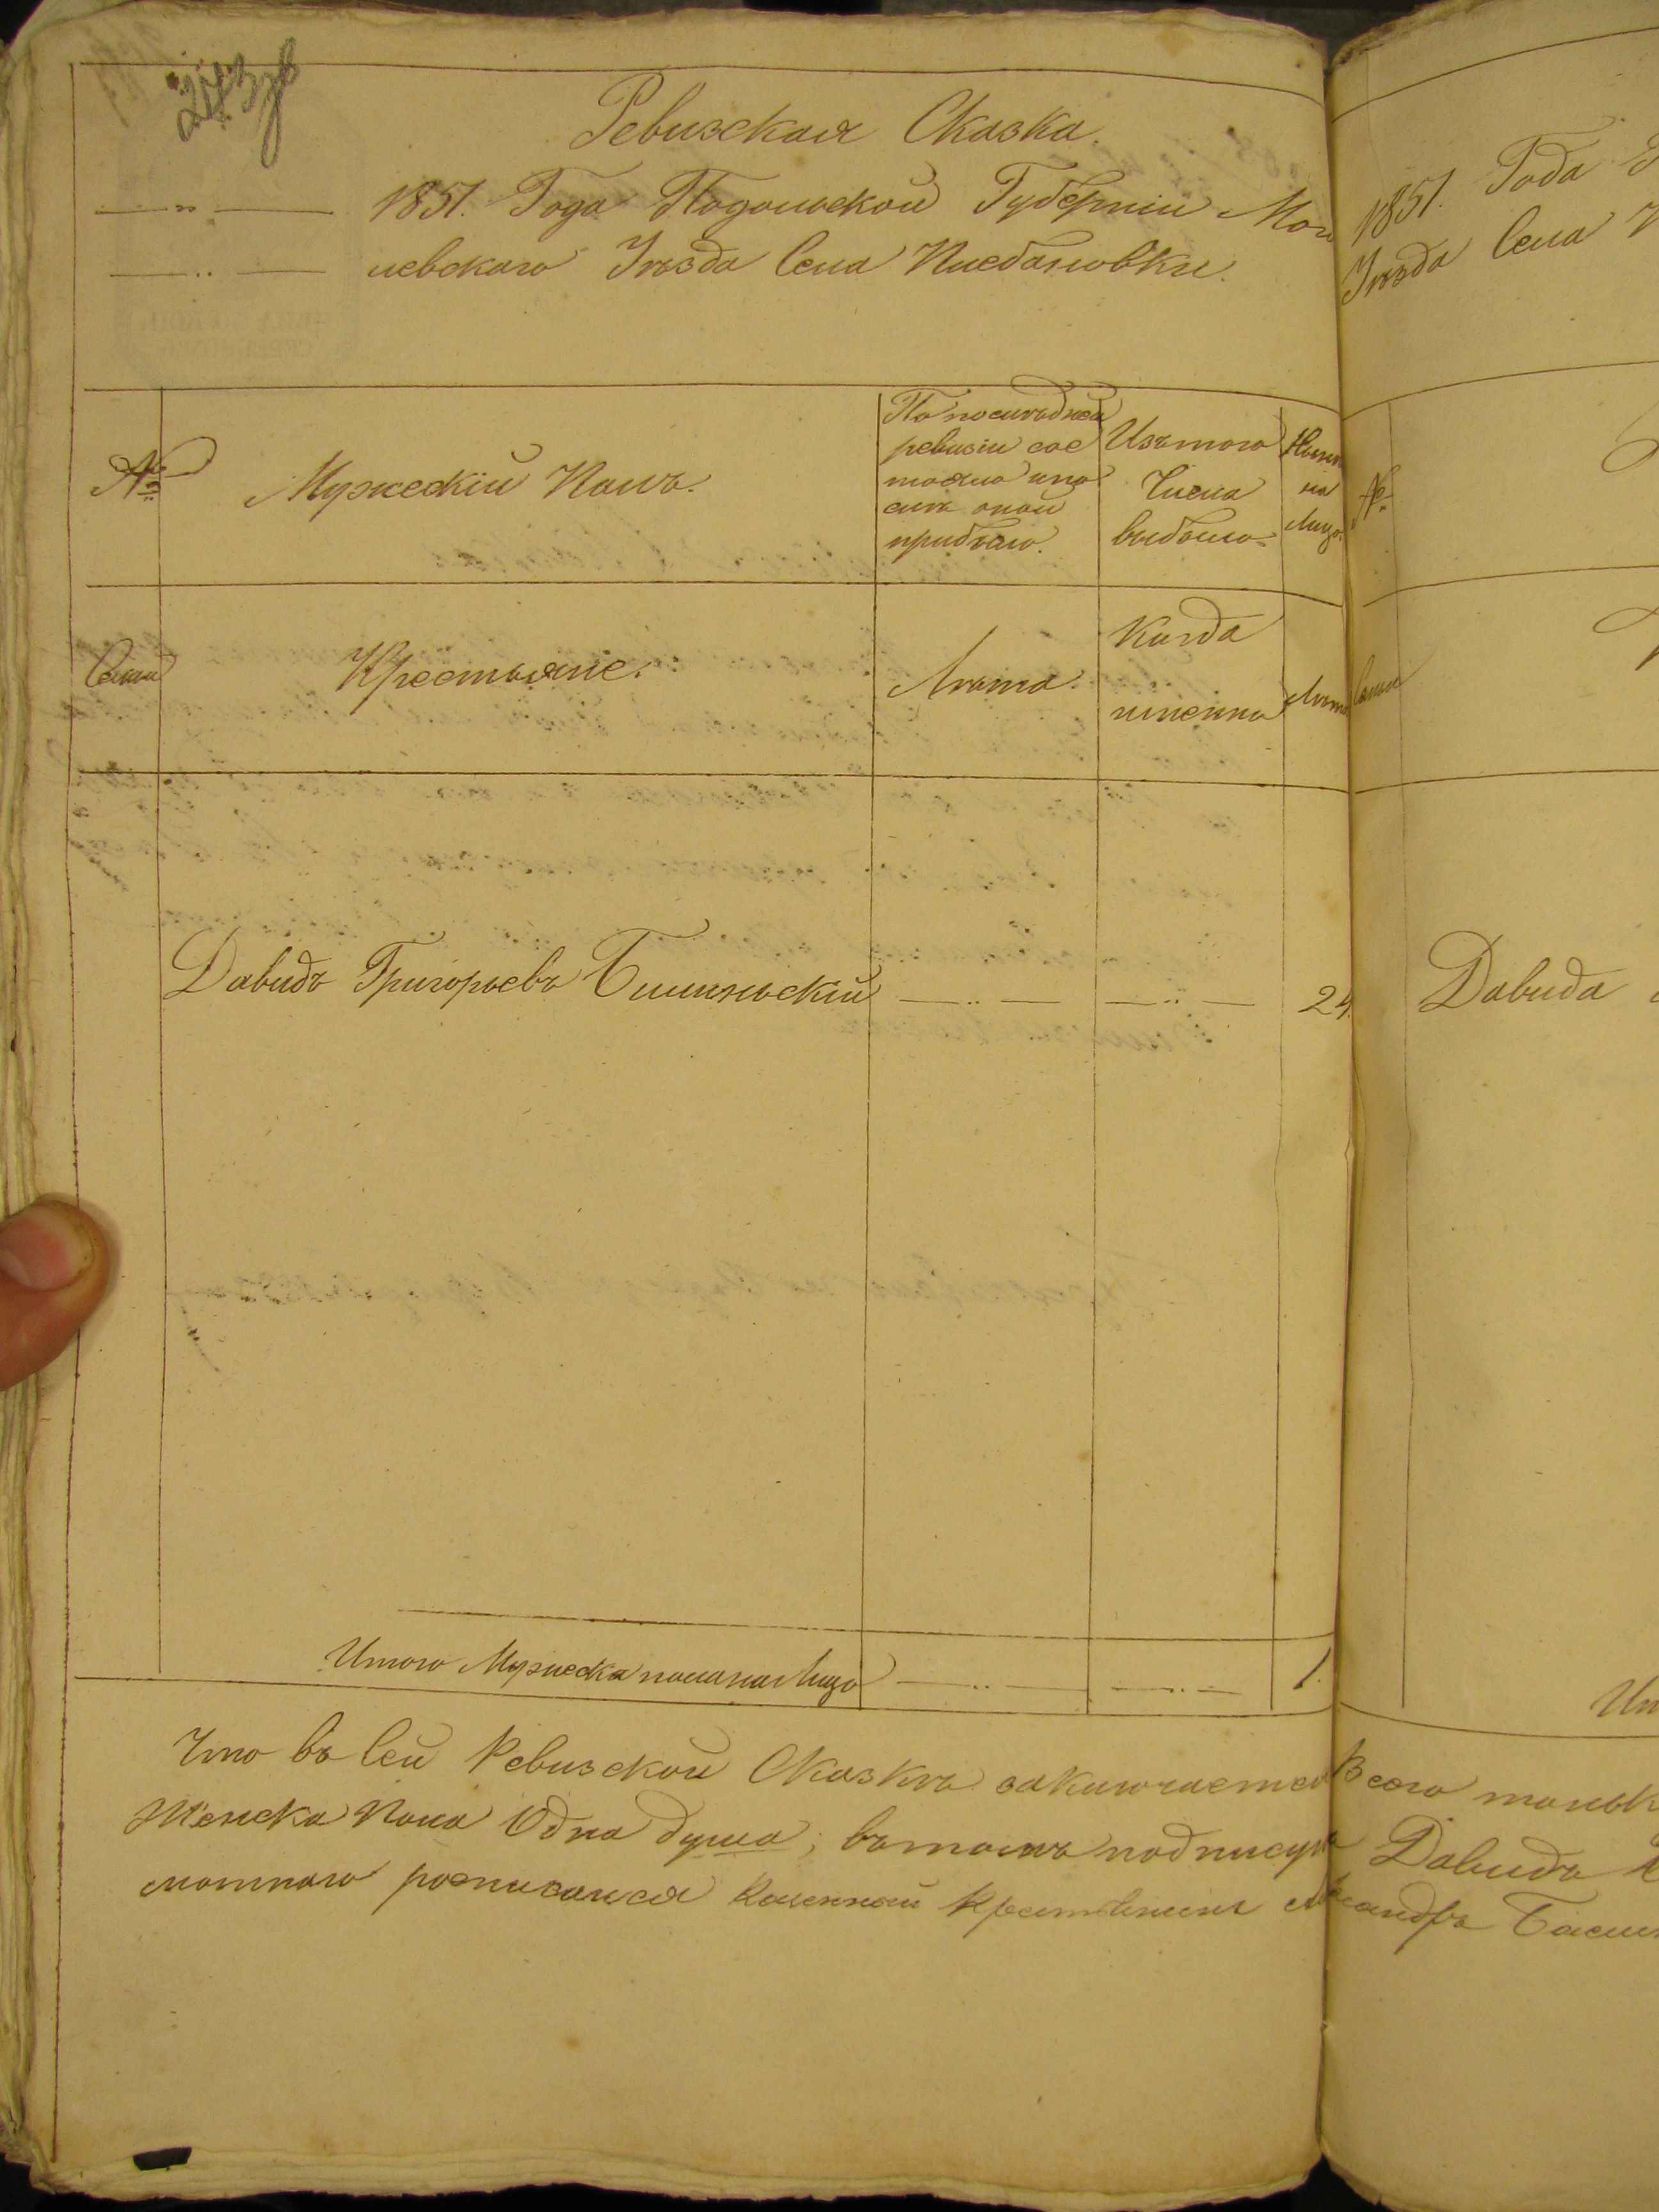 Ревизская Сказка.
1851. Года Подольской Губерніи Моги
левскаго Уѣзда Села Плебановки.
№
Мужескій Полъ.
По послѣдней
ревизіи сос
тояло ипо
слѣ оной
прибыло.
Изътого
Числа
выбыло.
Нынѣ
на
Лицо.
Семьи
Крестьяне.
Лѣта.
Когда
именно
Лѣта
Давидъ Григорьевъ
—..— —..— 24.
Итого Мужеска пола на Лицо —..— —..— 1.
Что въ Сей Ревизской Сказкѣ заключается
Женска Пола Одна душа; въ томъ подпису
мотнаго росписался Крестьянинъ
1851. Года
Уѣзда Села
№
Семьи
Давида
Всего
Давидъ